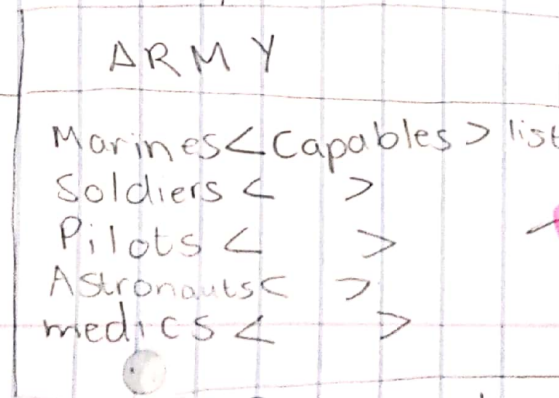 ARMY
Marines<Capables> list
Soldiers < >
Pilots < >
Astronauts< >
medics < >